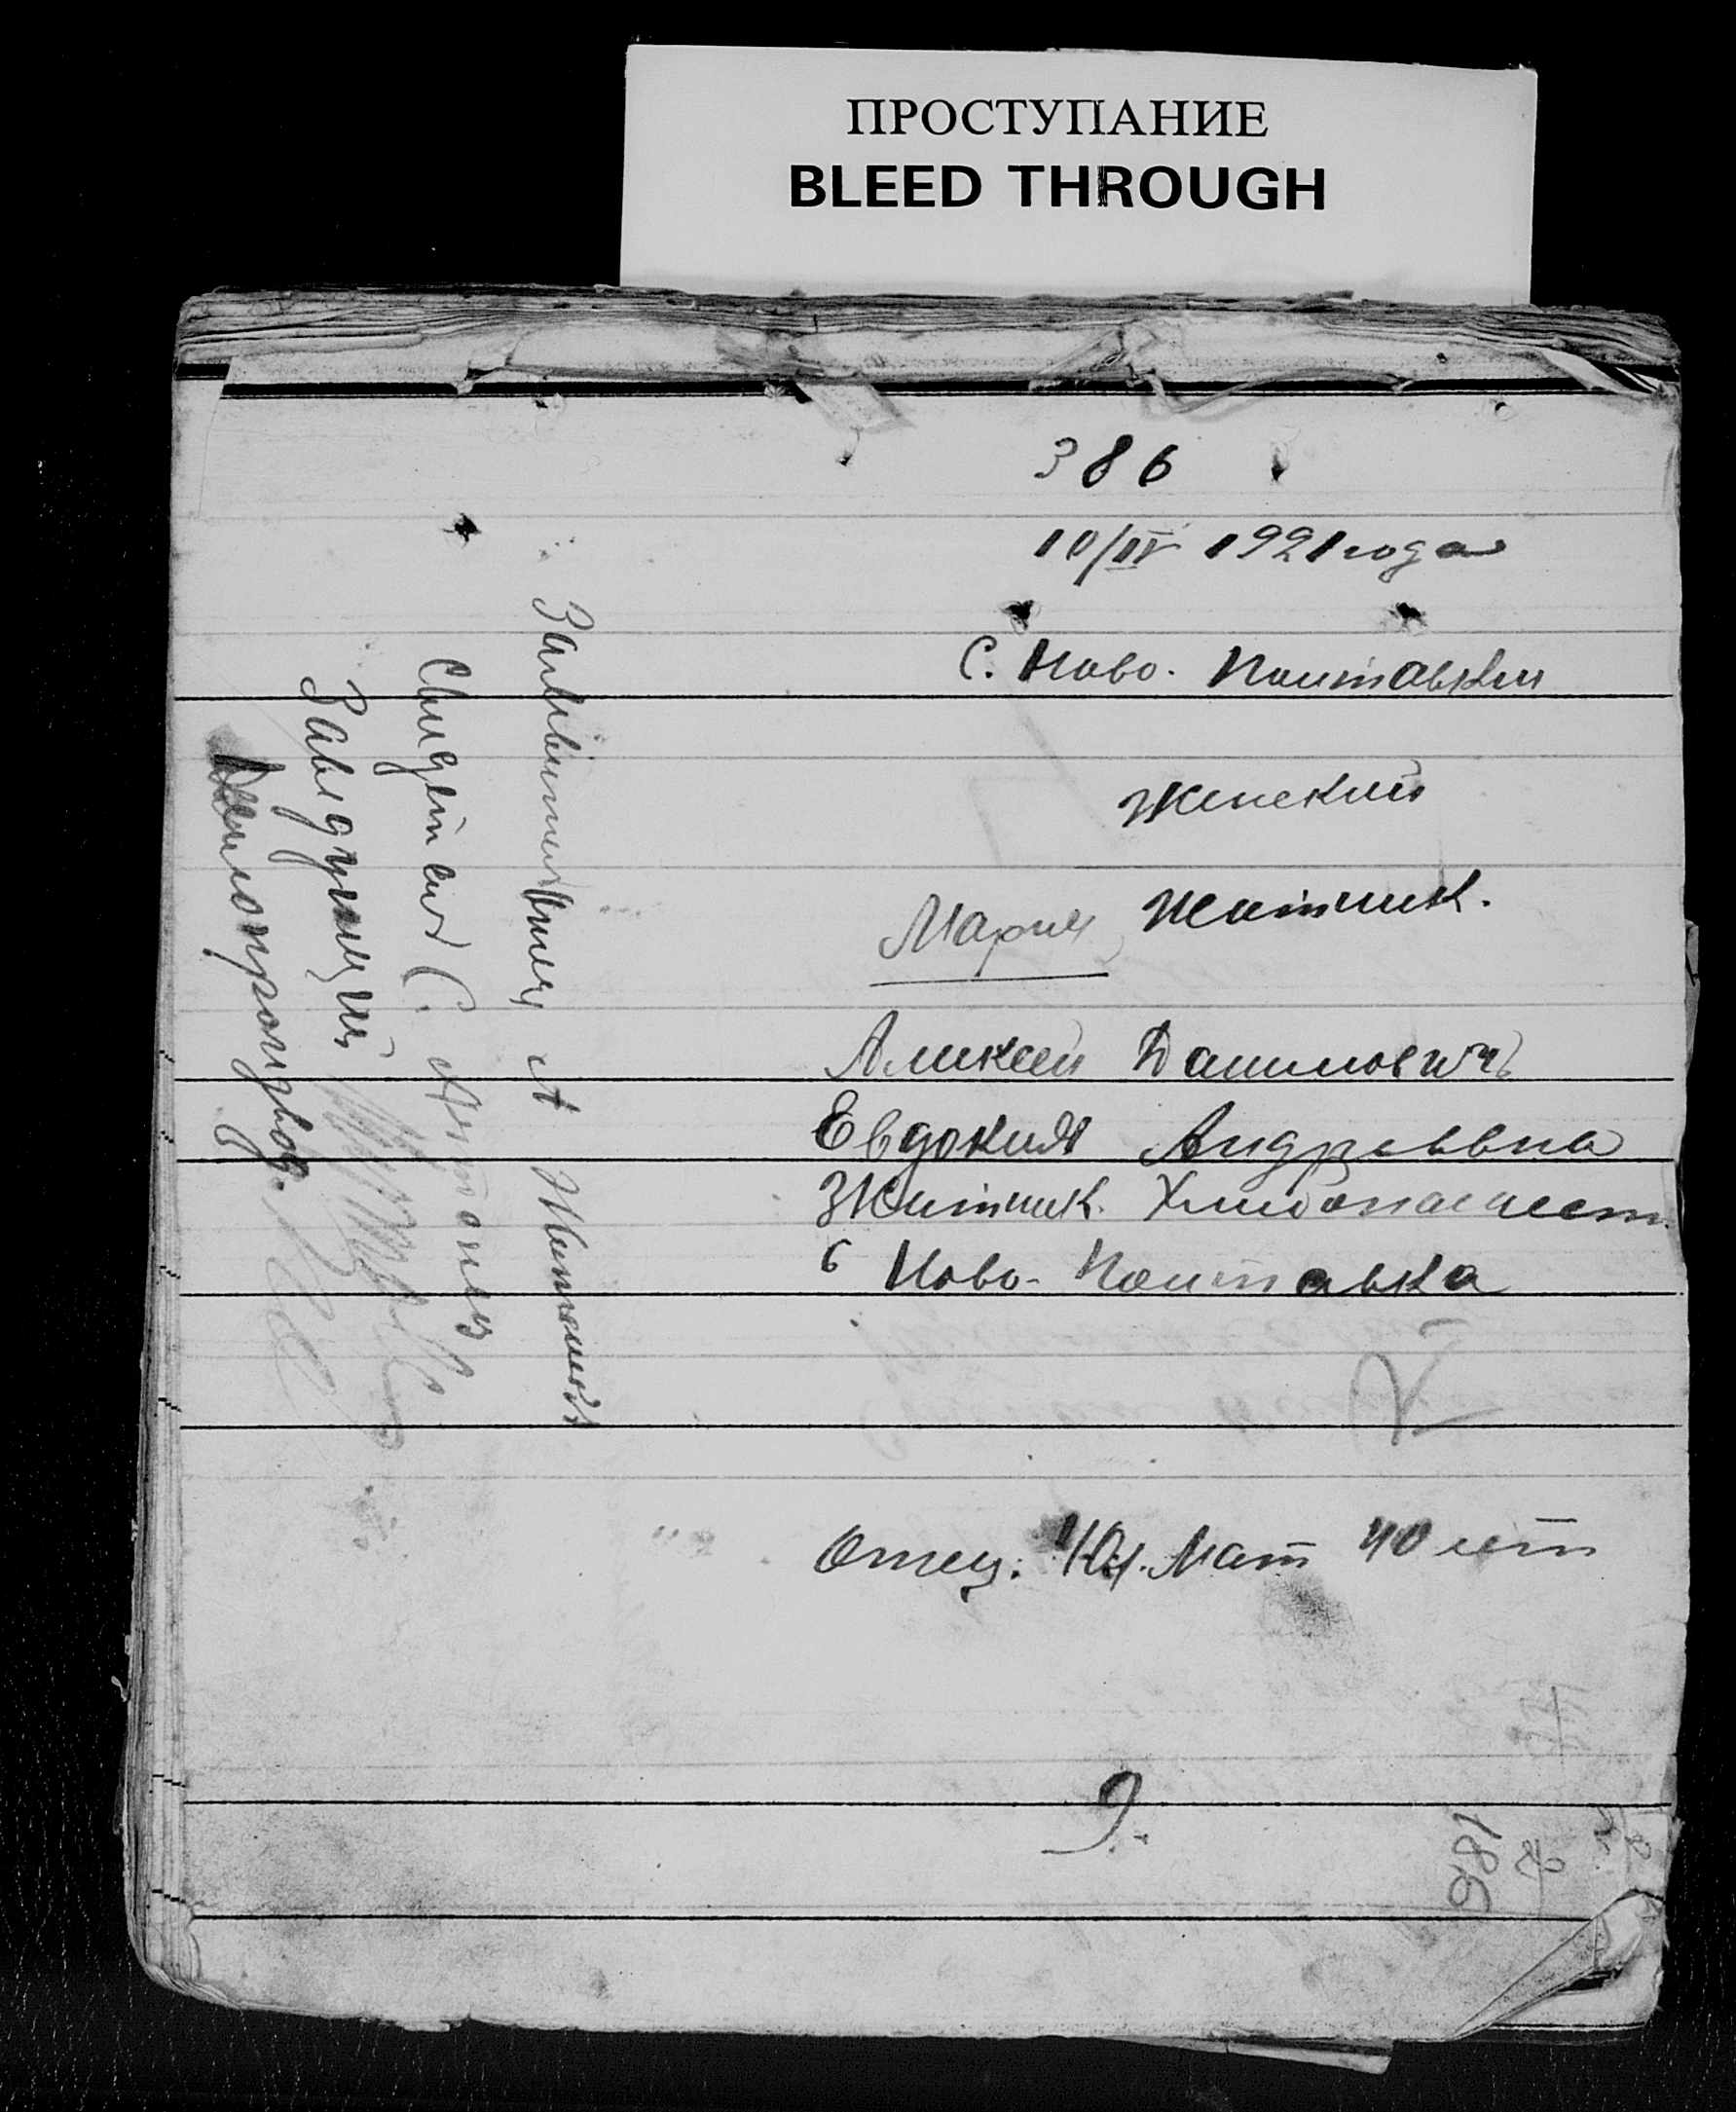 ПРОСТУПАНИЕ
BLEED THROUGH
386
10/IV 1921 года
С. Ново-Полтавки
женский
Мария Житник.
Алексей Данилович
Евдокия Андреевна
Житник. Хлебопашест.
с Ново-Полтавка
Отец: Мат 40 лет
9.
186
А Житник
Свидетель С.
Заведующий
Делопроизвод.